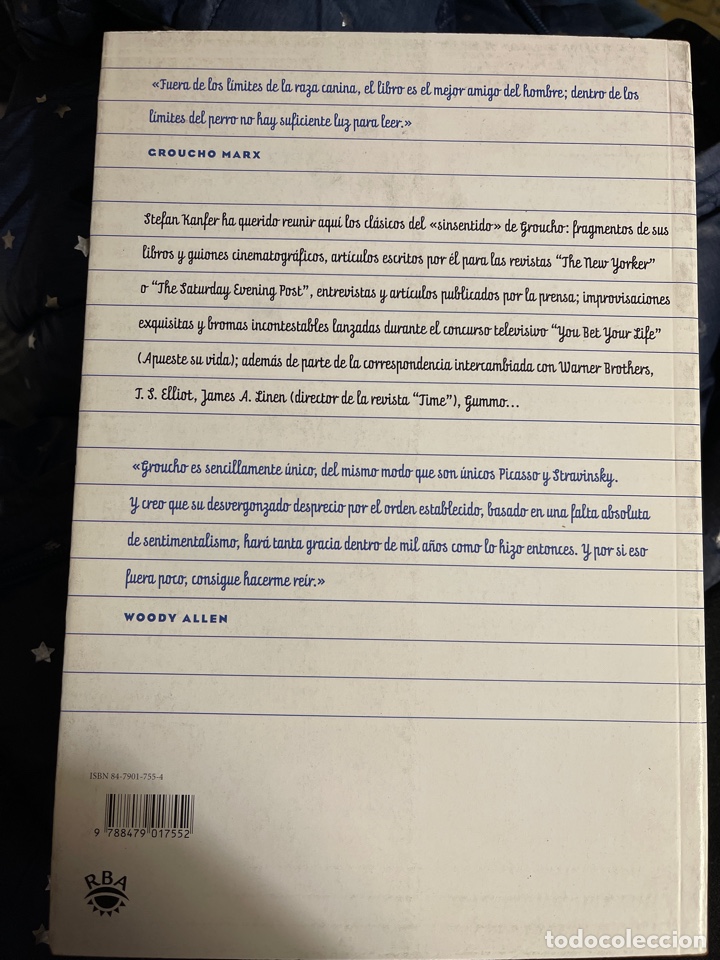 «Fuera de los límites de la raza canina, el libro es el mejor amigo del hombre; dentro de los
límites del perro no hay suficiente luz para leer.»
GROUCHO MARX
Stefan Kanfer ha querido reunir aquí los clásicos del «sinsentido» de Groucho: fragmentos de sus
libros y guiones cinematográficos, artículos escritos por él para las revistas "The New Yorker"
o "The Saturday Evening Post", entrevistas y artículos publicados por la prensa; improvisaciones
exquisitas y bromas incontestables lanzadas durante el concurso televisivo "You Bet Your Life"
(Apueste su vida); además de parte de la correspondencia intercambiada con Warner Brothers,
T. S. Elliot, James A. Linen (director de la revista "Time"), Gummo...
«Groucho es sencillamente único, del mismo modo que son únicos Picasso y Stravinsky.
Y creo que su desvergonzado desprecio por el orden establecido, basado en una falta absoluta
de sentimentalismo, hará tanta gracia dentro de mil años como lo hizo entonces. Y por si eso
fuera poco, consigue hacerme reír.»
WOODY ALLEN
ISBN 84-7901-755-4
9 788479 017552
RBA
todocoleccion